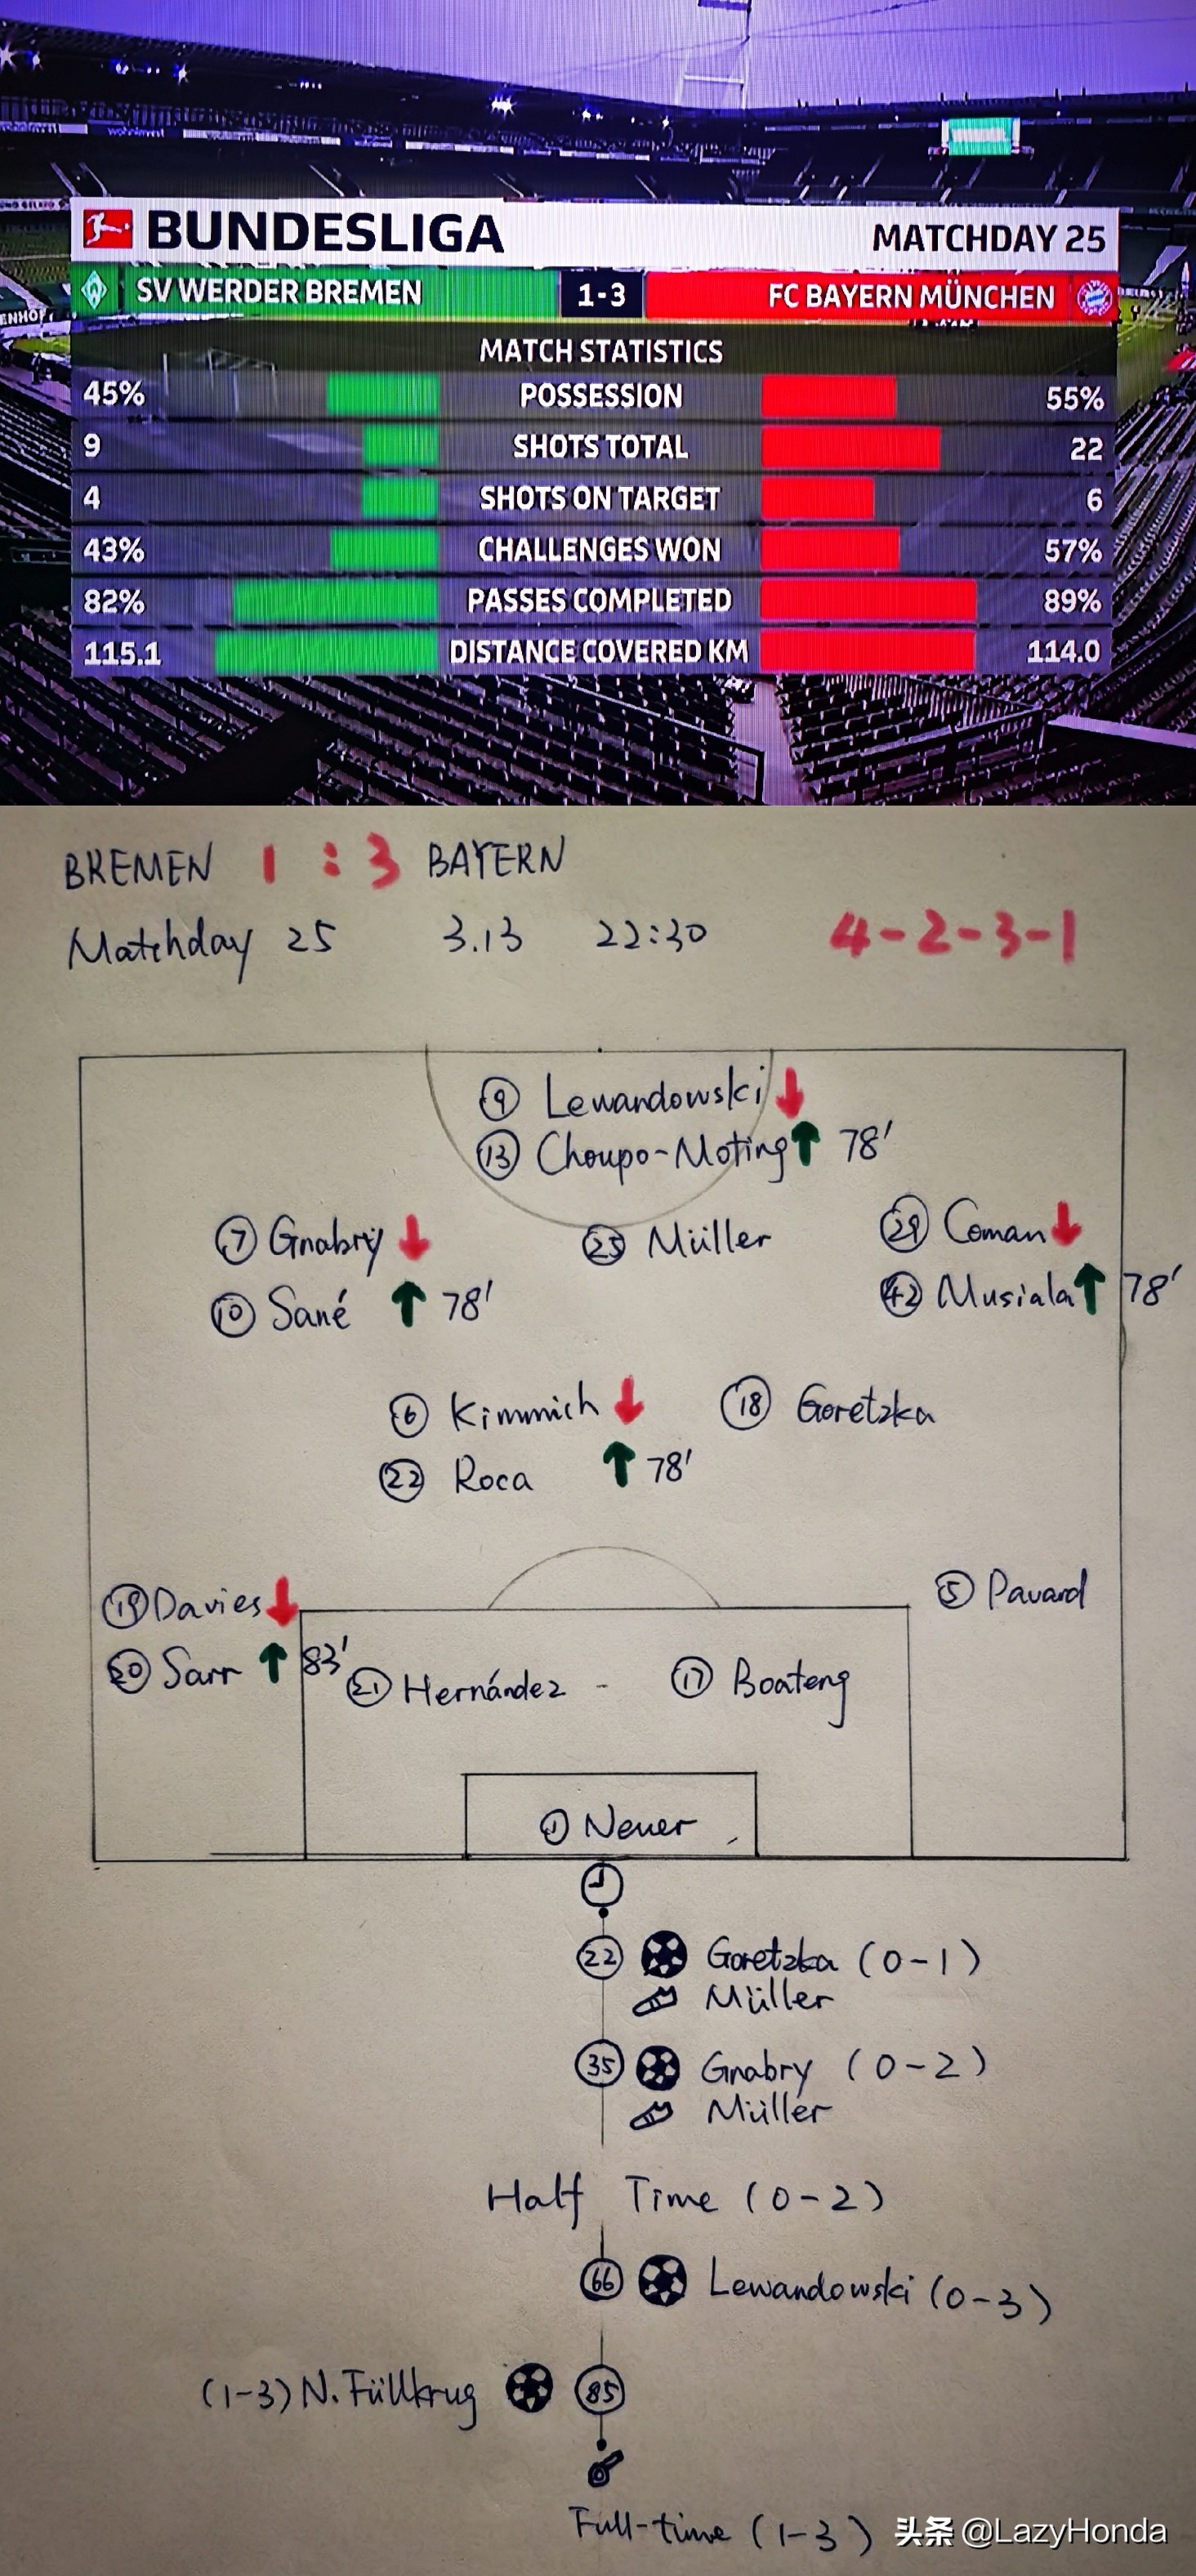 BUNDESLIGA MATCHDAY 25
SV WERDER BREMEN 1-3 FC BAYERN MÜNCHEN
ENHOF
MATCH STATISTICS
45% POSSESSION 55%
9 SHOTS TOTAL 22
4 SHOTS ON TARGET 6
43% CHALLENGES WON 57%
82% PASSES COMPLETED 89%
115.1 DISTANCE COVERED KM 114.0
BREMEN 1 : 3 BAYERN
Matchday 25 3.13 22:30 4-2-3-1
9 Lewandowski
13 Choupo-Moting 78'
7 Gnabry 25 Müller 29 Coman
10 Sané 78' 42 Musiala 78'
6 Kimmich 18 Goretzka
22 Roca 78'
19 Davies 5 Pavard
20 Sarr 83' 21 Hernández 17 Boateng
1 Neuer
22 Goretzka (0-1)
Müller
35 Gnabry (0-2)
Müller
Half Time (0-2)
66 Lewandowski (0-3)
(1-3) N. Füllkrug 85
Full-time (1-3)
头条 @LazyHonda